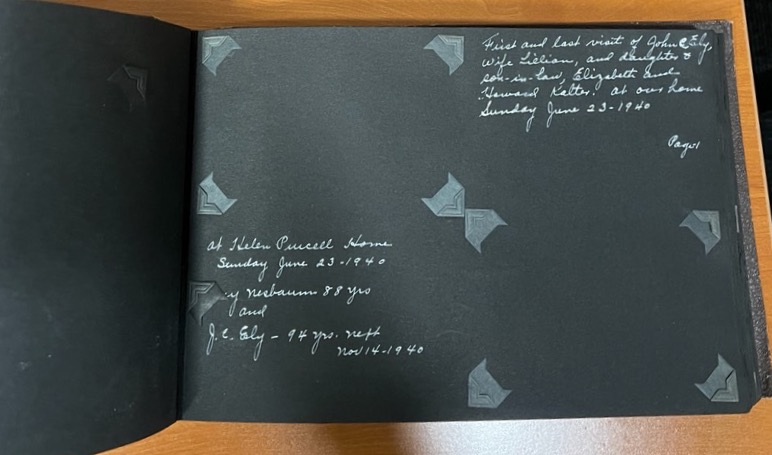 First and last visit of John C Ely,
wife Lielian, and daughter &
son-in-law, Elizabeth and
Howard Kalter. at our home
Sunday June 23-1940
Page 1
at Helen Purcell Home
Sunday June 23-1940
y Nesbaum 88 yrs
and
J.C. Ely - 94 yrs. next
Nov 14-1940